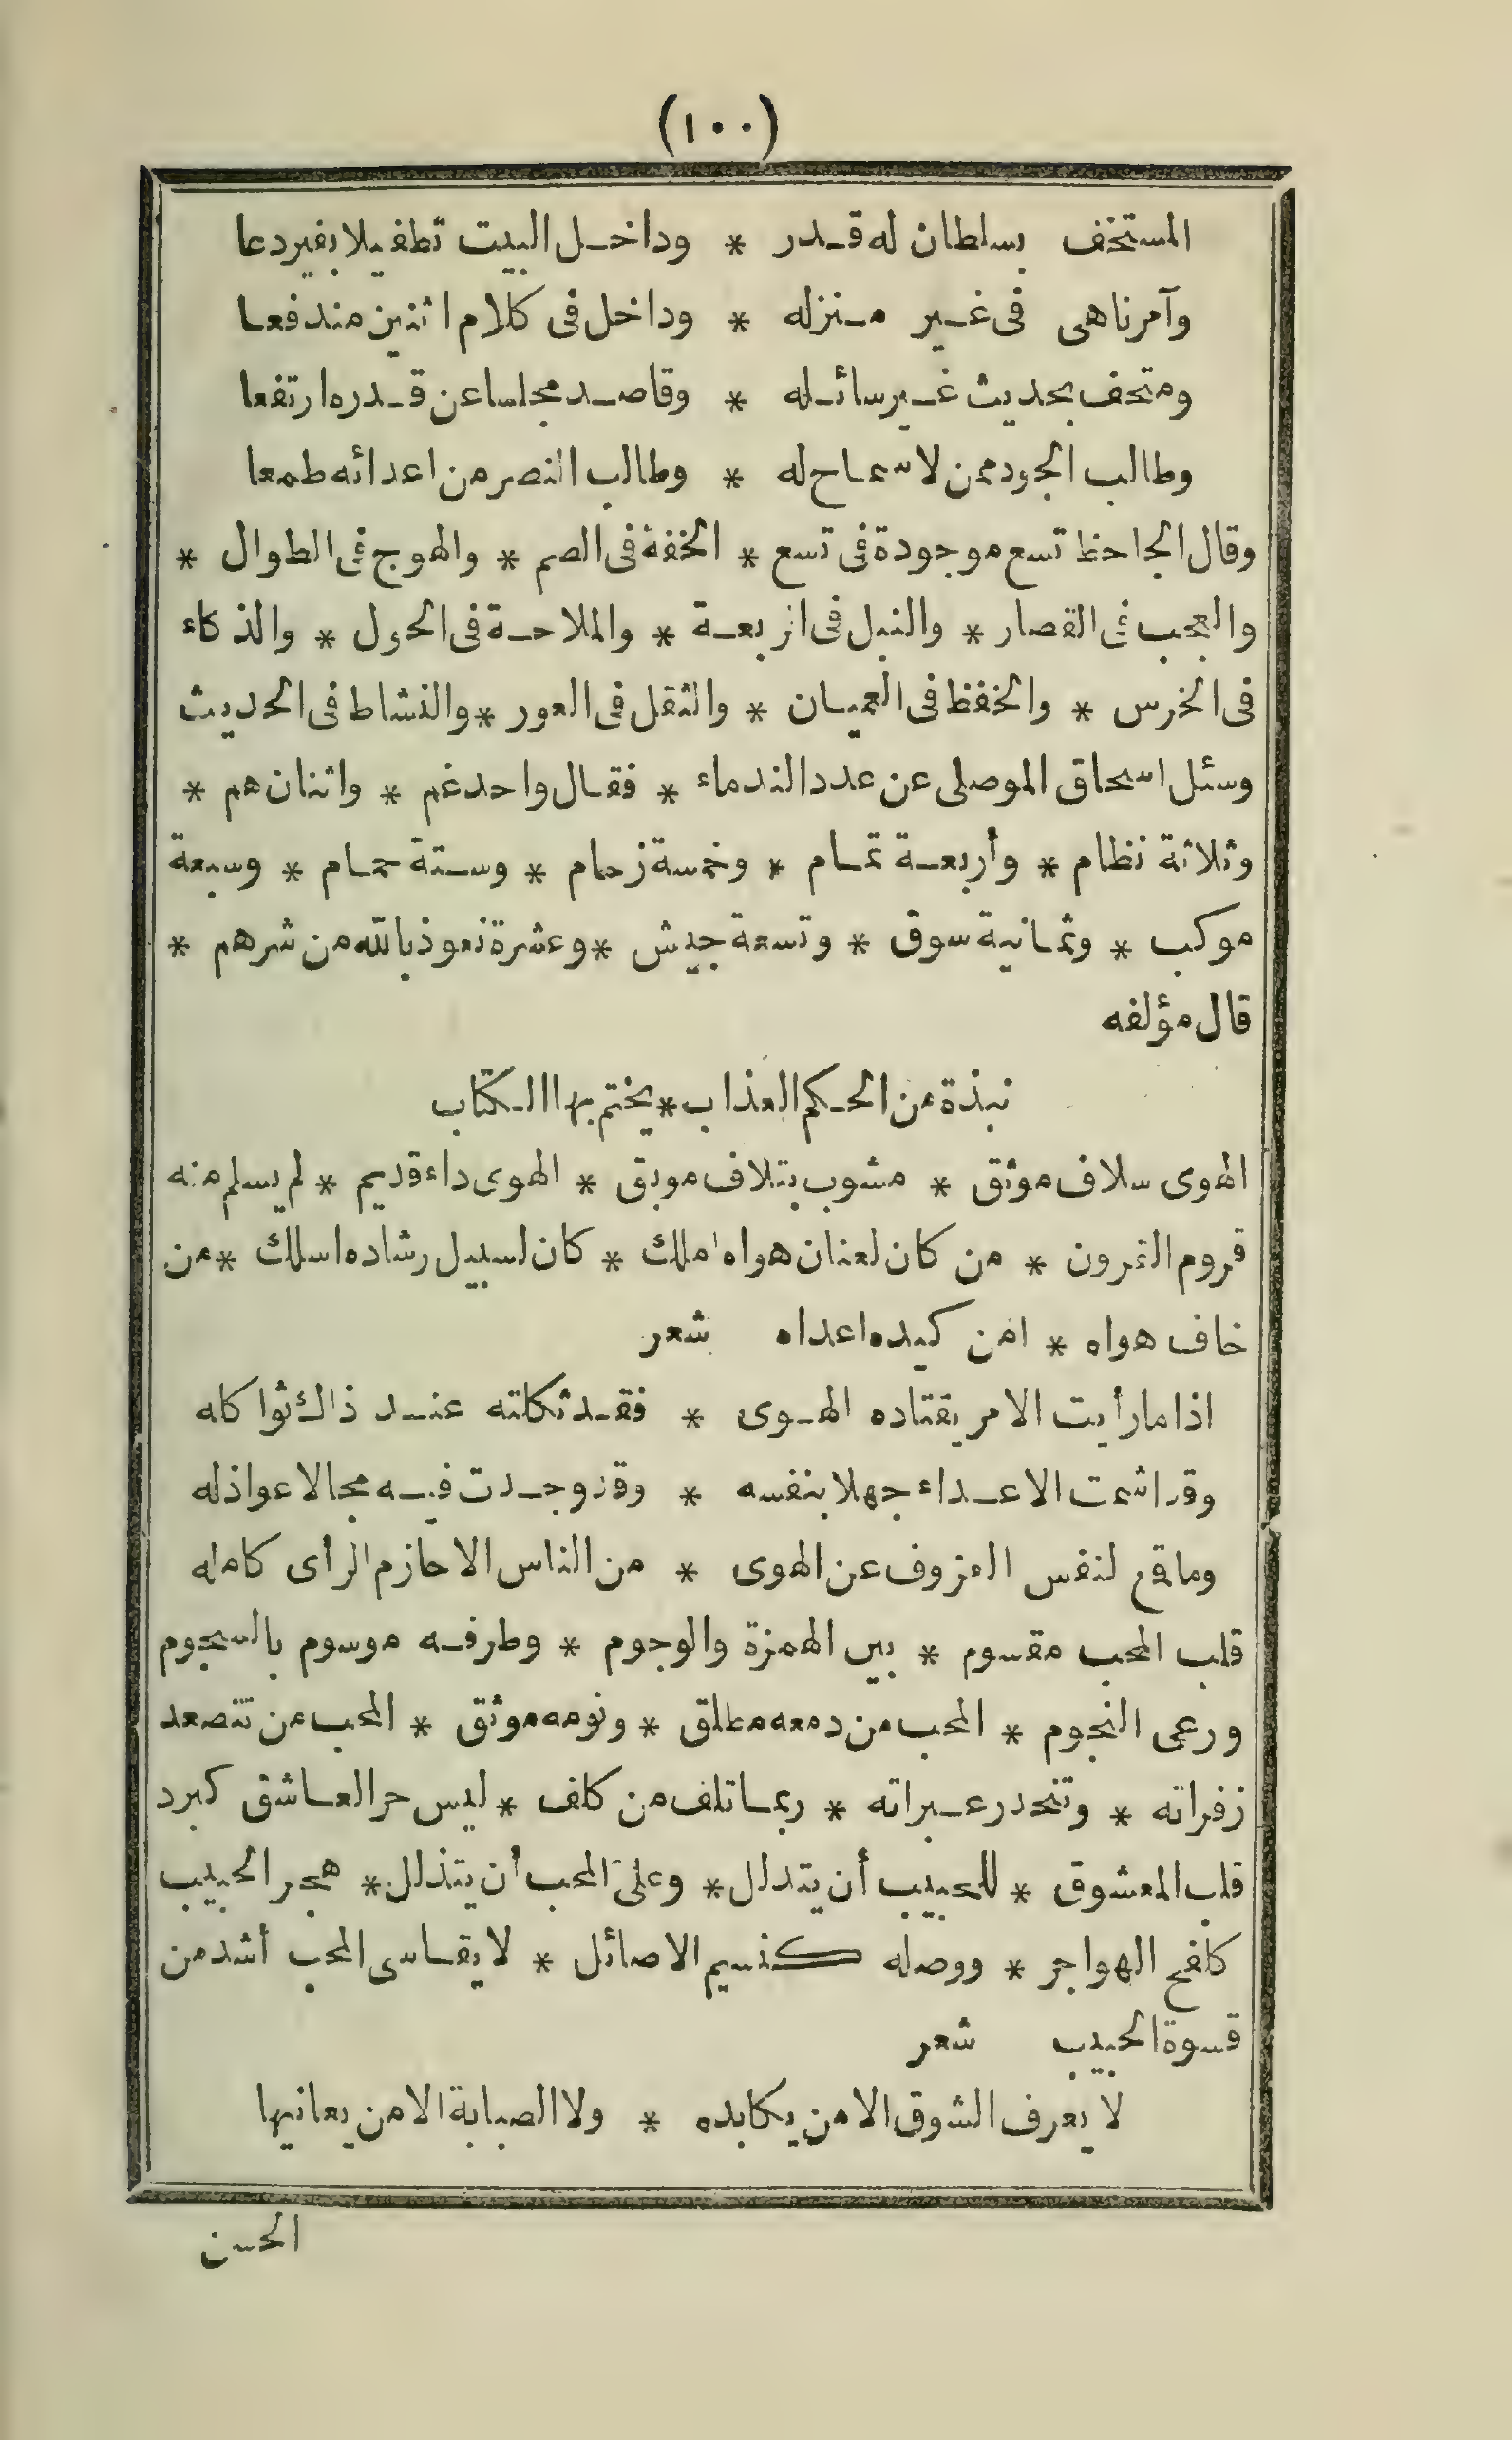 (١٠٠)
المستخف بسلطان له قدر * وداخل البيت تطفيلا بغير دعا
وآمر ناهى فى غير منزله * وداخل فى كلام اثنين مندفعا
ومتحف بحديث غير سائله * وقاصد مجلسا عن قدره ارتفعا
وطالب الجود ممن لا سماح له * وطالب النصر من اعدائه طمعا
وقال الجاحظ تسع موجودة فى تسع * الخفة فى الصم * والهوج فى الطوال *
والعجب فى القصار * والنبل فى اربعة * والملاحة فى الحول * والذكاء
فى الخرس * والحفظ فى العميان * والثقل فى العور * والنشاط فى الحديث
وسئل اسحاق الموصلى عن عدد الندماء * فقال واحد غم * واثنان هم *
وثلاثة نظام * وأربعة تمام * وخمسة زحام * وستة حمام * وسبعة
موكب * وثمانية سوق * وتسعة جيش * وعشرة نعوذ بالله من شرهم *
قال مؤلفه
نبذة من الحكم العذاب * يختم بها الكتاب
الهوى سلاف موثق * مشوب بتلاف موبق * الهوى داء قديم * لم يسلم منه
قروم القرون * من كان لعنان هواه املك * كان لسبيل رشاده اسلك * من
خاف هواه * امن كيده اعداه شعر
اذا ما رأيت الامر يقتاده الهوى * فقد ثكلته عند ذاك ثواكله
وقد اشمت الاعداء جهلا بنفسه * وقد وجدت فيه مجالا عواذله
وما قمع لنفس العزوف عن الهوى * من الناس الا حازم الرأى كامله
قلب المحب مقسوم * بين الهمزة والوجوم * وطرفه موسوم بالسجوم
ورعى النجوم * المحب من دمعه مطلق * ونومه موثق * المحب من تتصعد
زفراته * وتتحدر عبراته * ربما تلف من كلف * ليس حر العاشق كبرد
قلب المعشوق * للحبيب أن يتدلل * وعلى المحب أن يتذلل * هجر الحبيب
كلفح الهواجر * ووصله كنسيم الاصائل * لا يقاسى المحب أشد من
قسوة الحبيب شعر
لا يعرف الشوق الا من يكابده * ولا الصبابة الا من يعانيها
الحسن